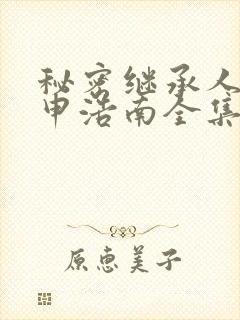 秘密继承人
申浩南全集
原惠美子